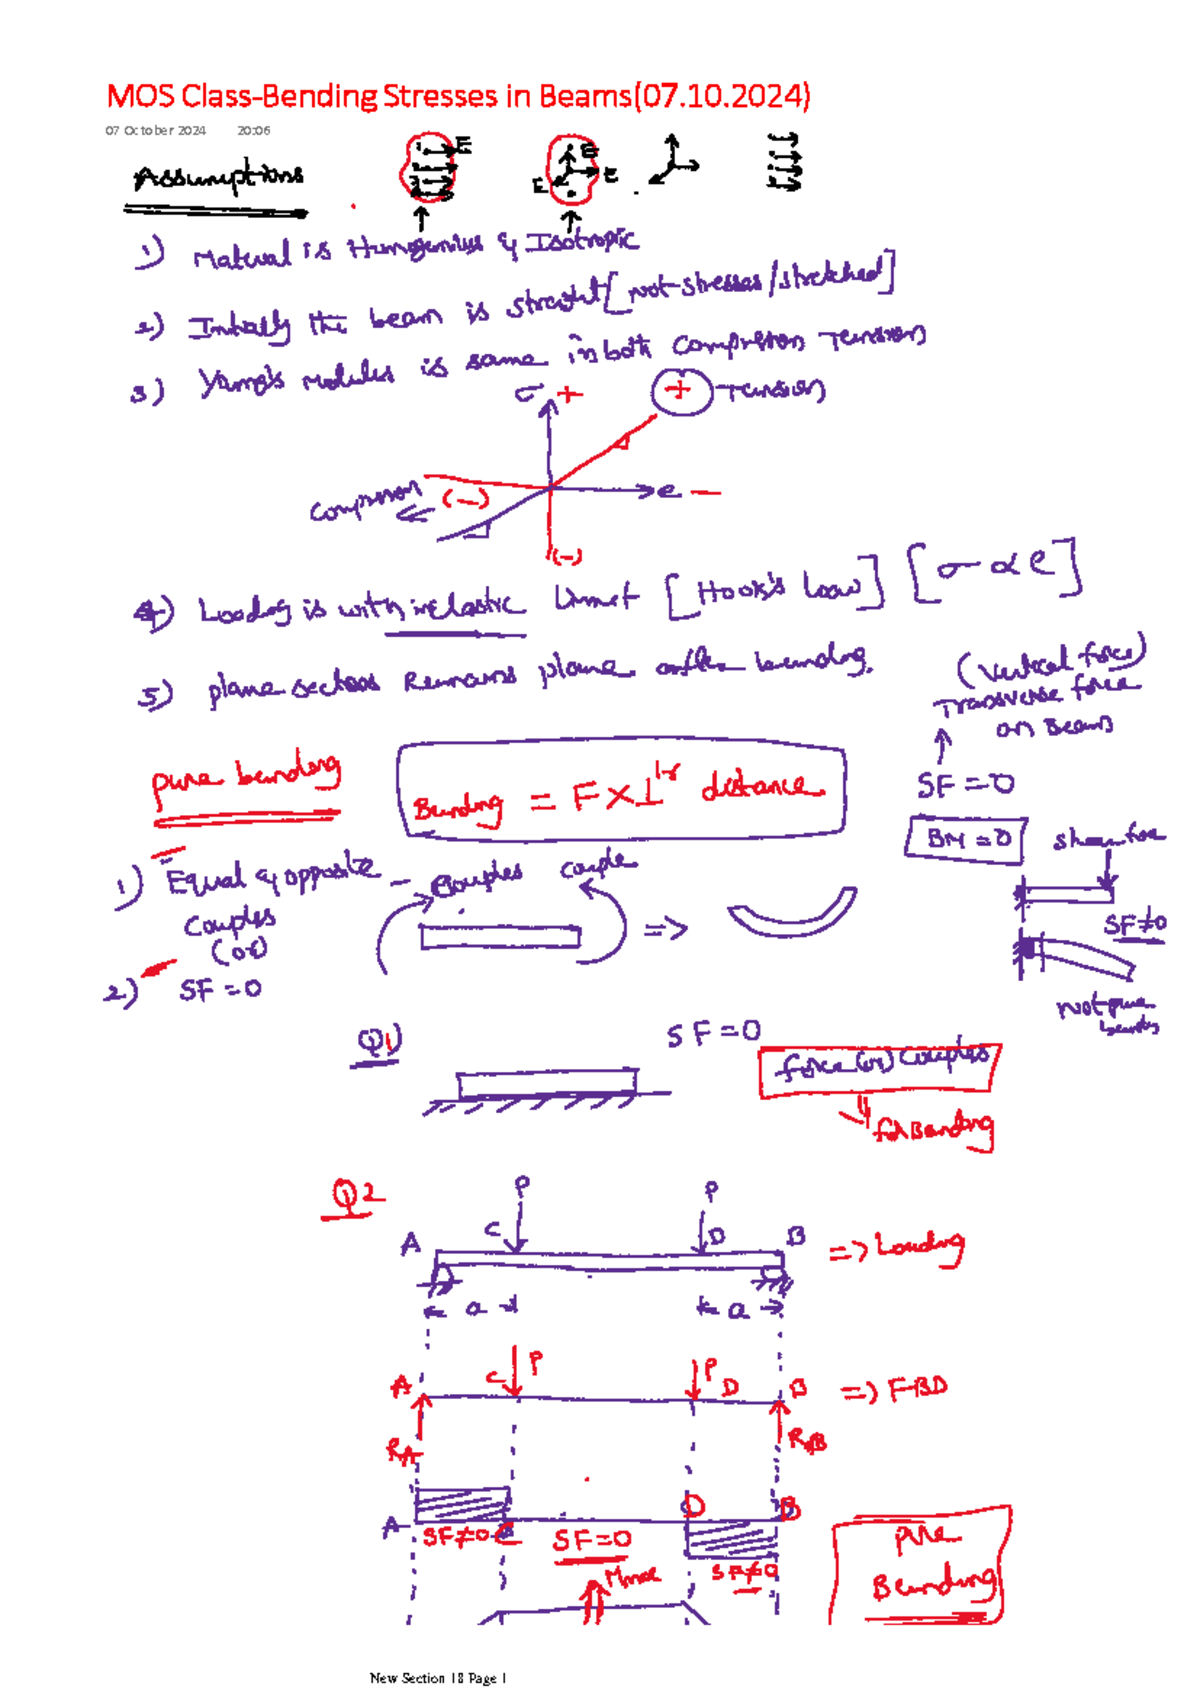 MOS Class-Bending Stresses in Beams(07.10.2024)
07 October 2024 20:06
Assumptions
E
E
E
E
1) Material is Homogenius & Isotropic
2) Initially the beam is straight [not-stresses/stretched]
3) Young's Modules is same in both Compression Tension
σ +
+ Tension
Compression (-)
e -
(-)
4) Loading is within elastic Limit [Hook's Law] [σ ∝ e]
5) plane sections Remains plane after bending.
(Vertical force)
Transverse force
on Beam
SF = 0
BM = 0
pure bending
Bending = F × ⊥lr distance
1) Equal & opposite - Couples Couple
Couples
(or)
2) SF = 0
=>
shear force
SF ≠ 0
not pure
bending
Q1)
SF = 0
force (or) Couples
for Bending
Q2
P P
A C D B => Loading
a a
P P
A C D B => FBD
RA RB
A C D B
SF≠0 SF=0 SF≠0
Mmax
pure
Bending
New Section 18 Page 1